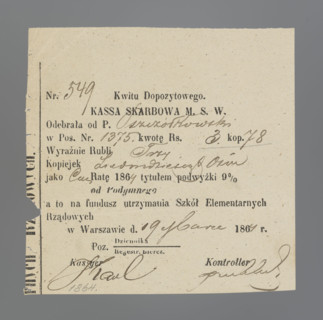 Nr. 549 Kwitu Depozytowego.
KASSA SKARBOWA M. S. W.
Odebrała od P. Pszczółkowski
w Pos. Nr. 1375 kwotę Rs. 3 kop. 78
Wyraźnie Rubli Trzy
Kopiejek Siedmdziesiąt Ośm
jako Ratę 1864 tytułem podwyżki 9%
od Podymnego
a to na fundusz utrzymania Szkół Elementarnych
Rządowych
w Warszawie d. 19 Marca 1864 r.
Poz. Dziennika
Kassyer Kontroller
1864.